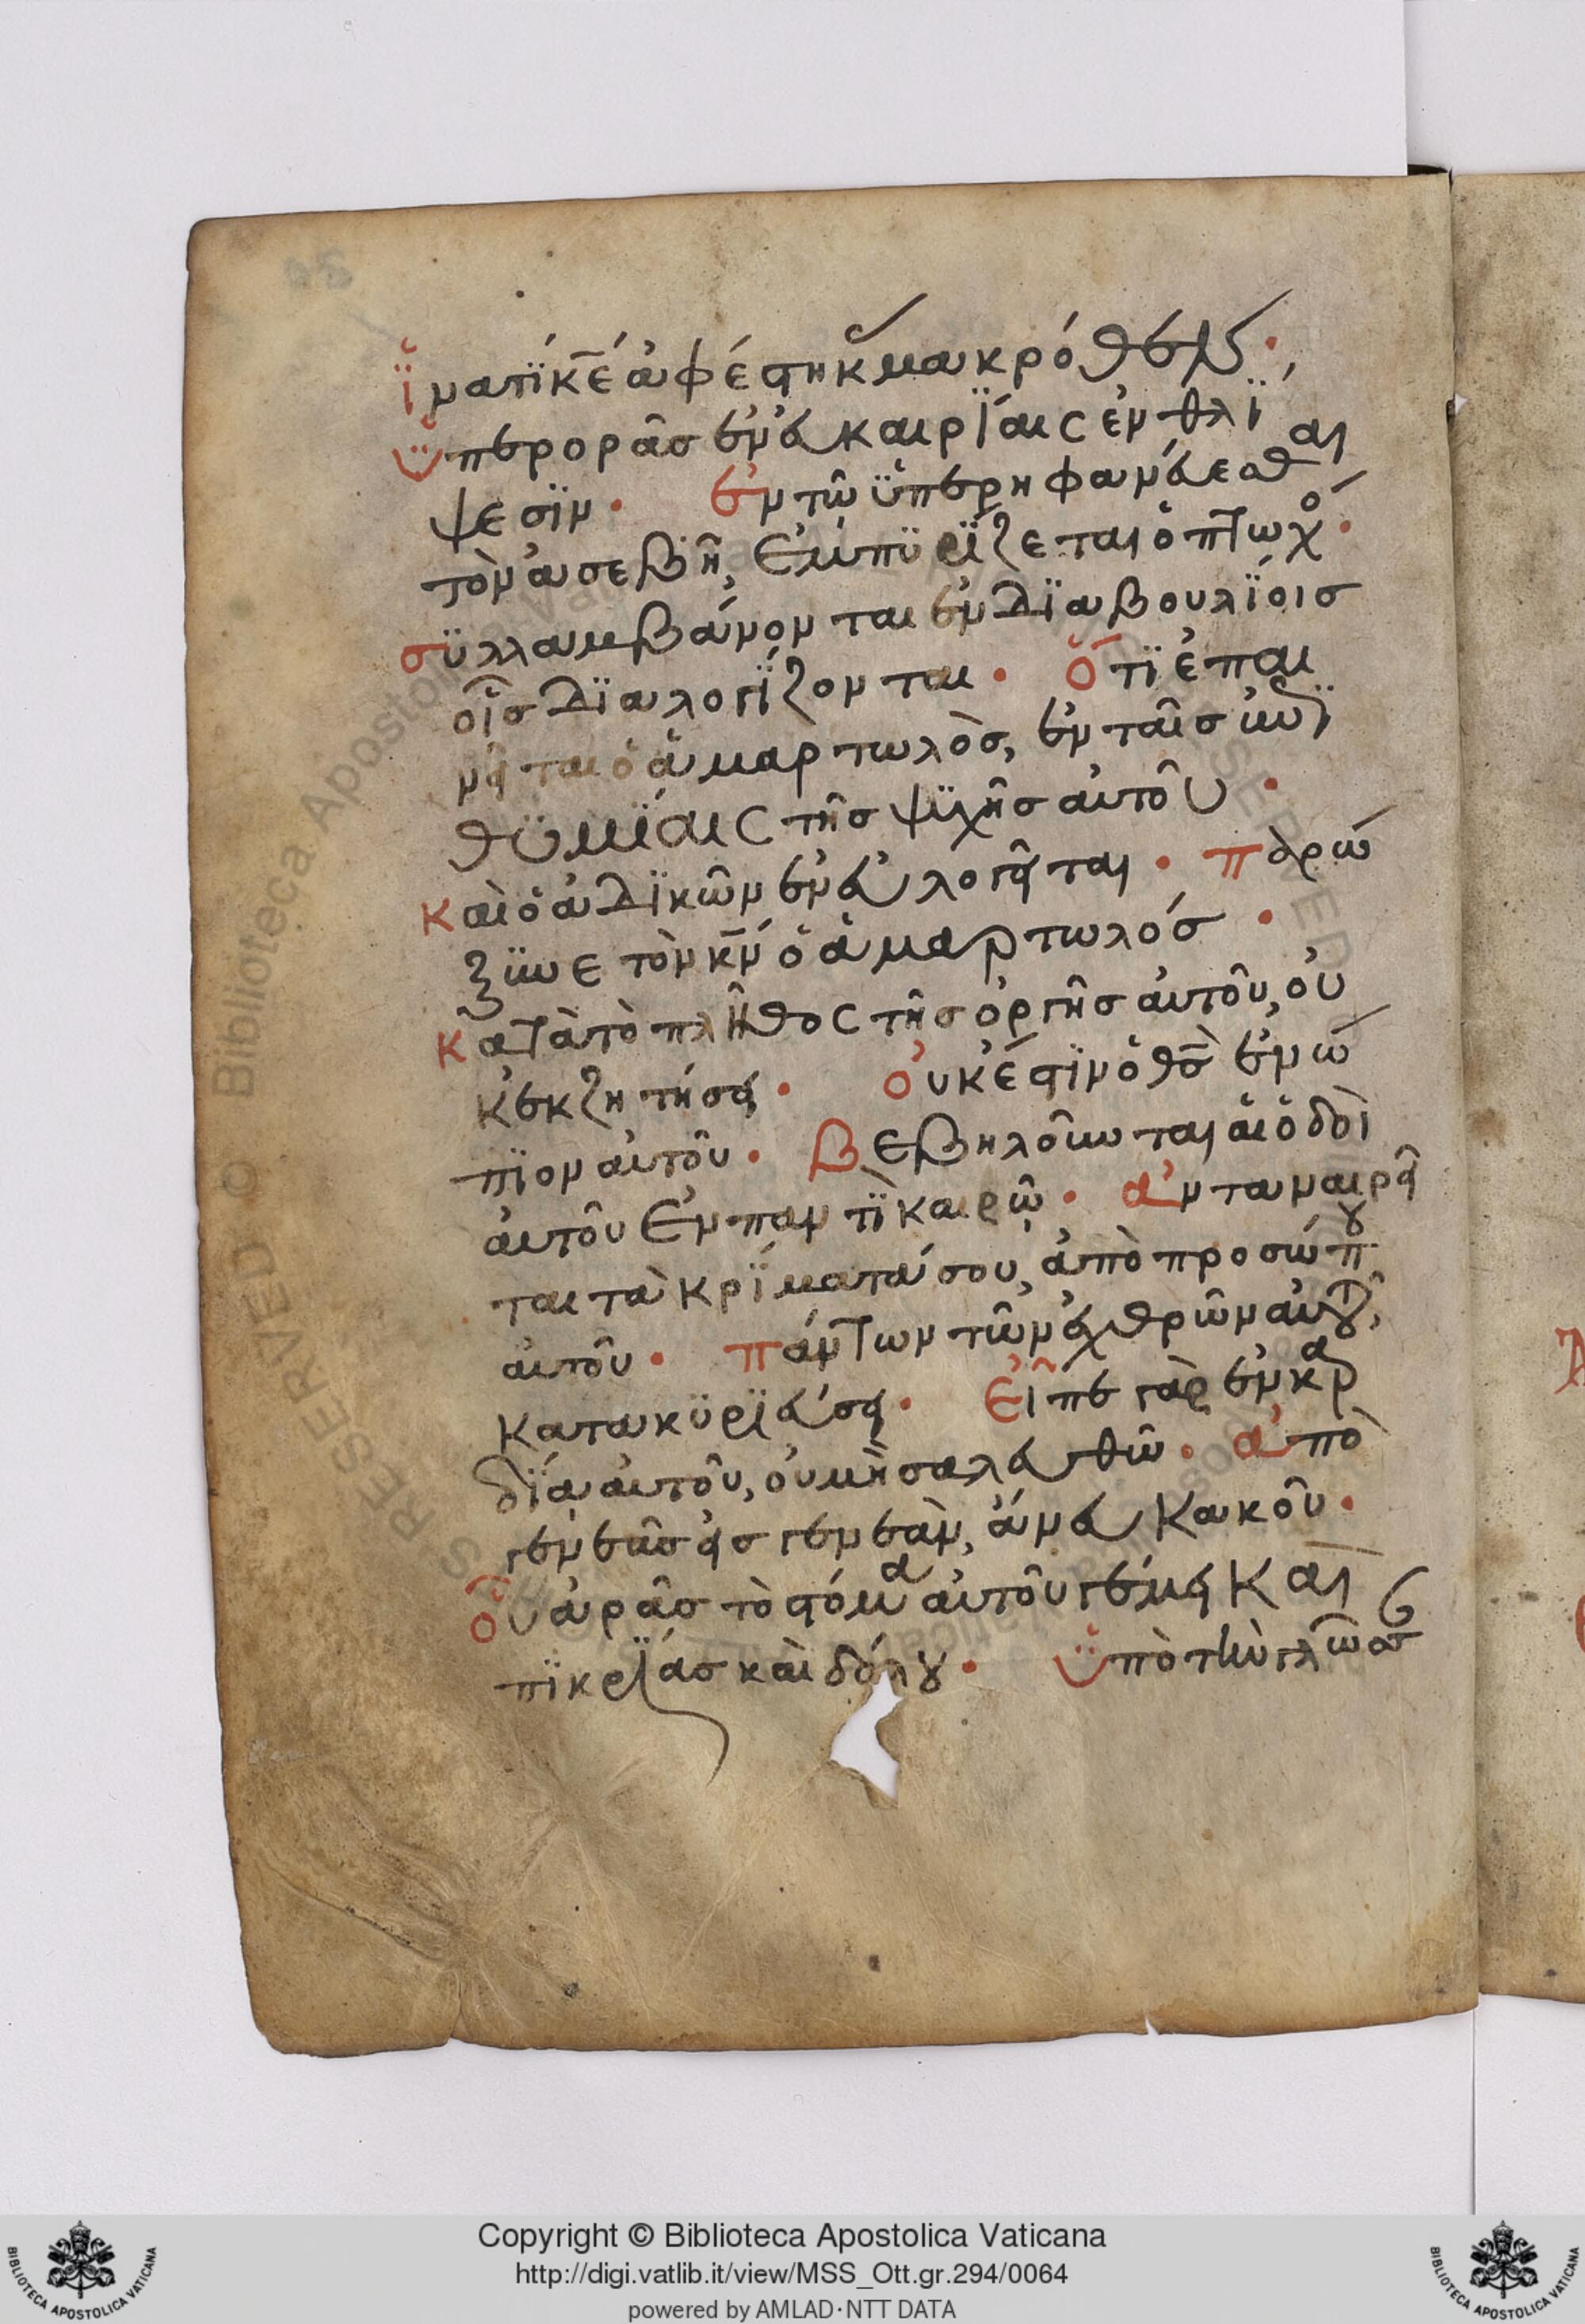 ἵνατί κε ἀφέστηκας μακρόθεν·
ὑπερορᾶς ἐν εὐκαιρίαις ἐν θλί
ψεσιν· ἐν τῷ ὑπερηφανεύεσθαι
τὸν ἀσεβῆ, ἐμπυρίζεται ὁ πτωχός·
συλλαμβάνονται ἐν διαβουλίοισ
οἷσ διαλογίζονται· ὅτι ἐπαι
νεῖται ὁ ἁμαρτωλὸσ, ἐν ταῖσ ἐπι
θυμίαις τῆσ ψυχῆσ αὐτοῦ·
καὶ ὁ ἀδικῶν ἐνευλογεῖται· παρώ
ξυνε τὸν κν ὁ ἁμαρτωλόσ·
κατὰ τὸ πλῆθος τῆσ ὀργῆσ αὐτοῦ, οὐ
κ ἐκζητήσει· οὐκ ἔστιν ὁ θσ ἐνώ
πιον αὐτοῦ· βεβηλοῦνται αἱ ὁδοὶ
αὐτοῦ ἐν παντὶ καιρῷ· ἀνταναιρεῖ
ται τὰ κρίματά σου, ἀπὸ προσώπου
αὐτοῦ· πάντων τῶν ἐχθρῶν αὐτοῦ,
κατακυριεύσει· εἶπε γὰρ ἐν καρ
δίᾳ αὐτοῦ, οὐ μὴ σαλευθῶ· ἀπὸ
γενεᾶσ εἰσ γενεὰν, ἄνευ κακοῦ·
οὗ ἀρᾶσ τὸ στόμα αὐτοῦ γέμει καὶ
πικρίασ καὶ δόλου· ὑπὸ τὴν γλῶσσ
Copyright © Biblioteca Apostolica Vaticana
http://digi.vatlib.it/view/MSS_Ott.gr.294/0064
powered by AMLAD·NTT DATA